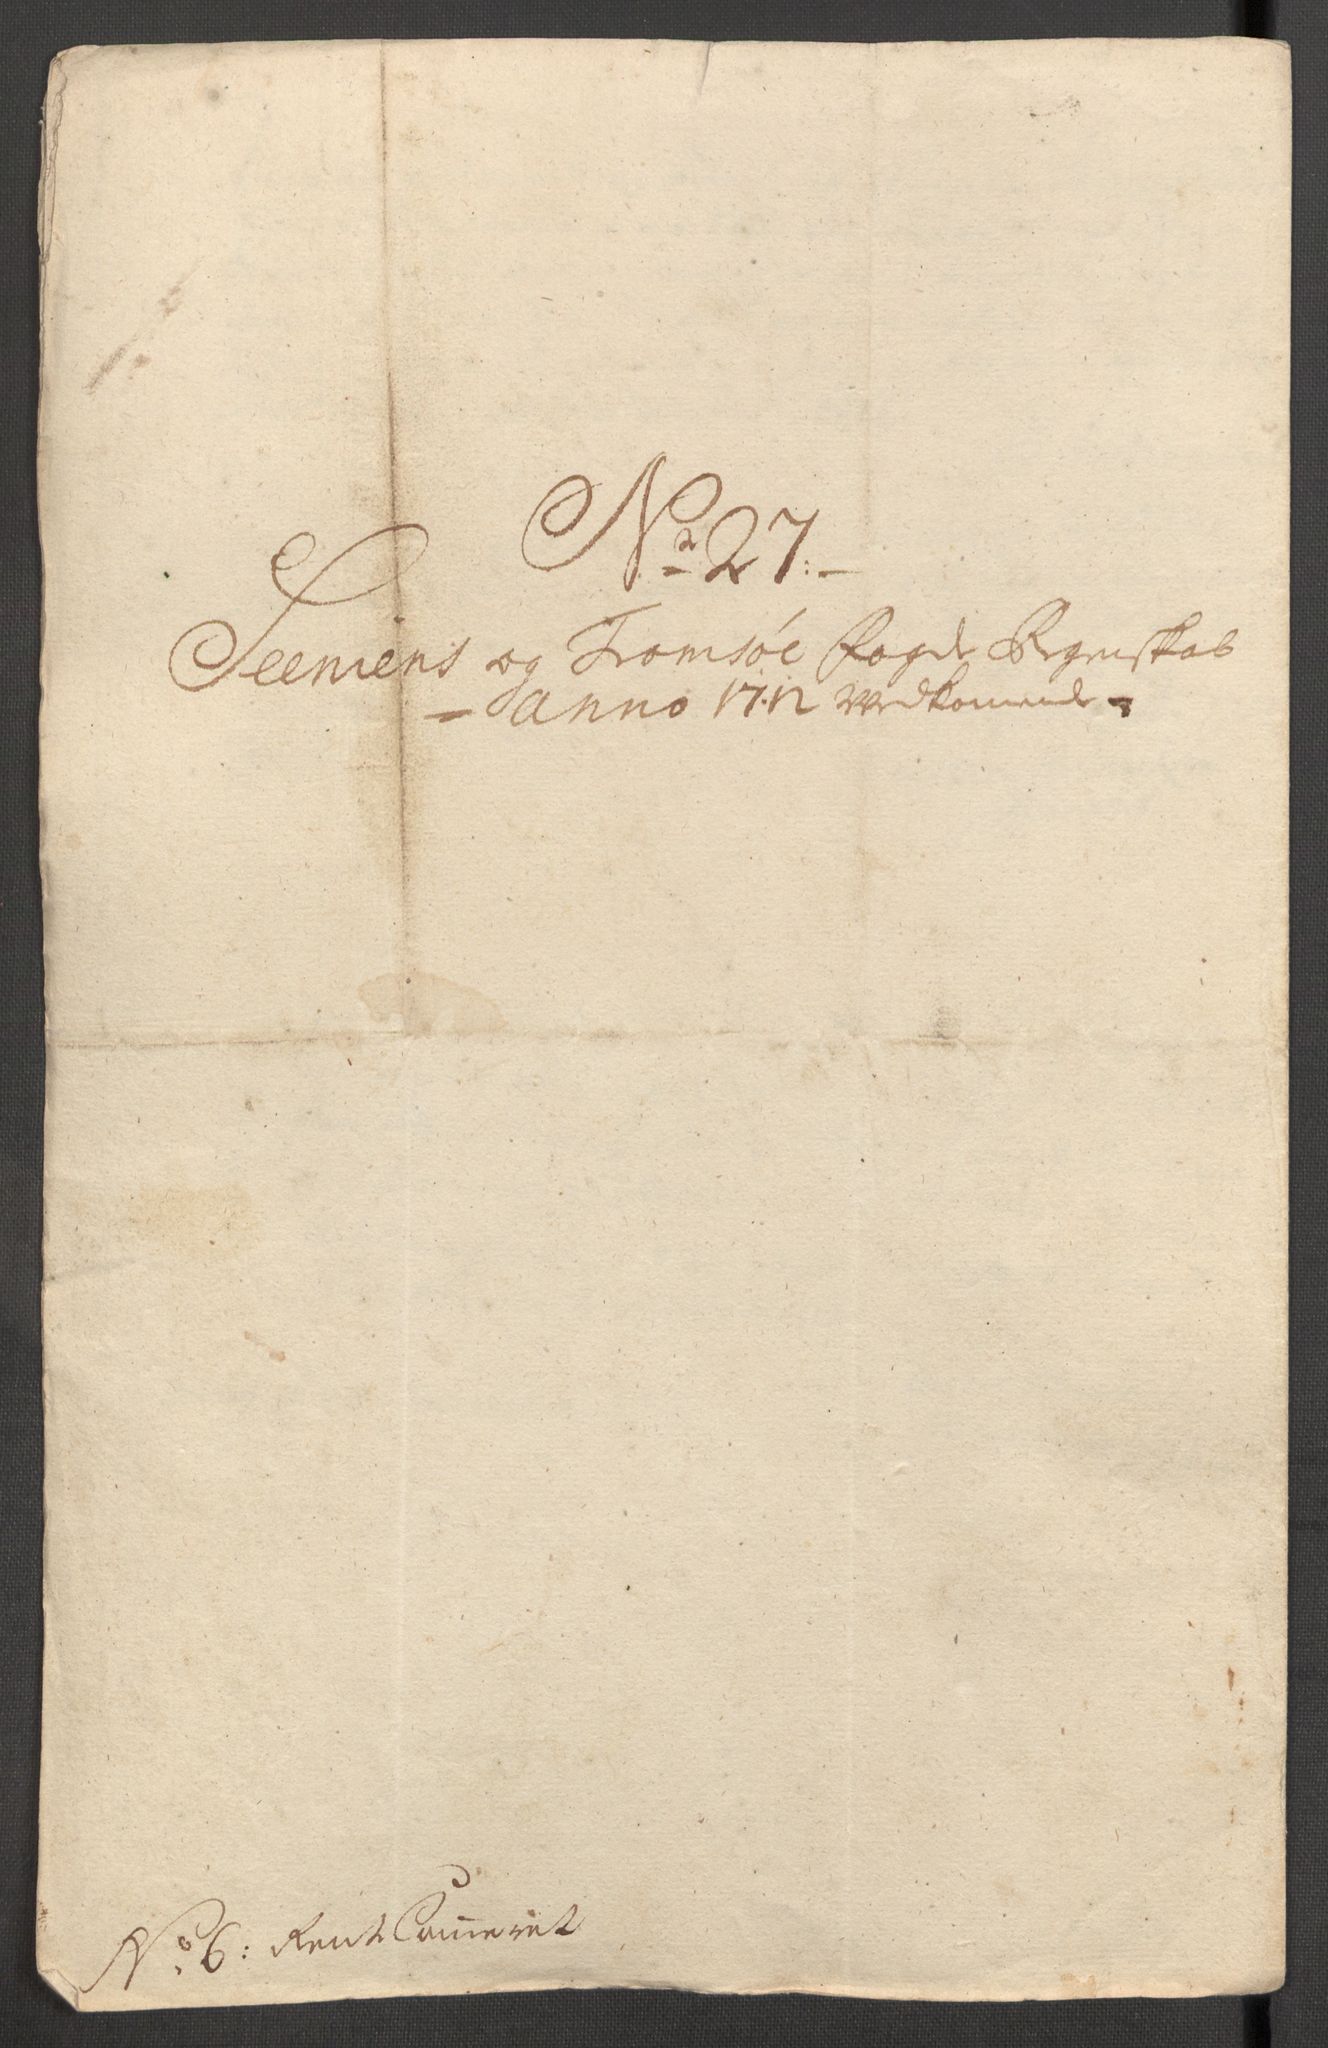 No 27:
Seeniens og Tromsøe fogd Regnskab
Anno 1712 Vedkomende
No 6: RentCammeret